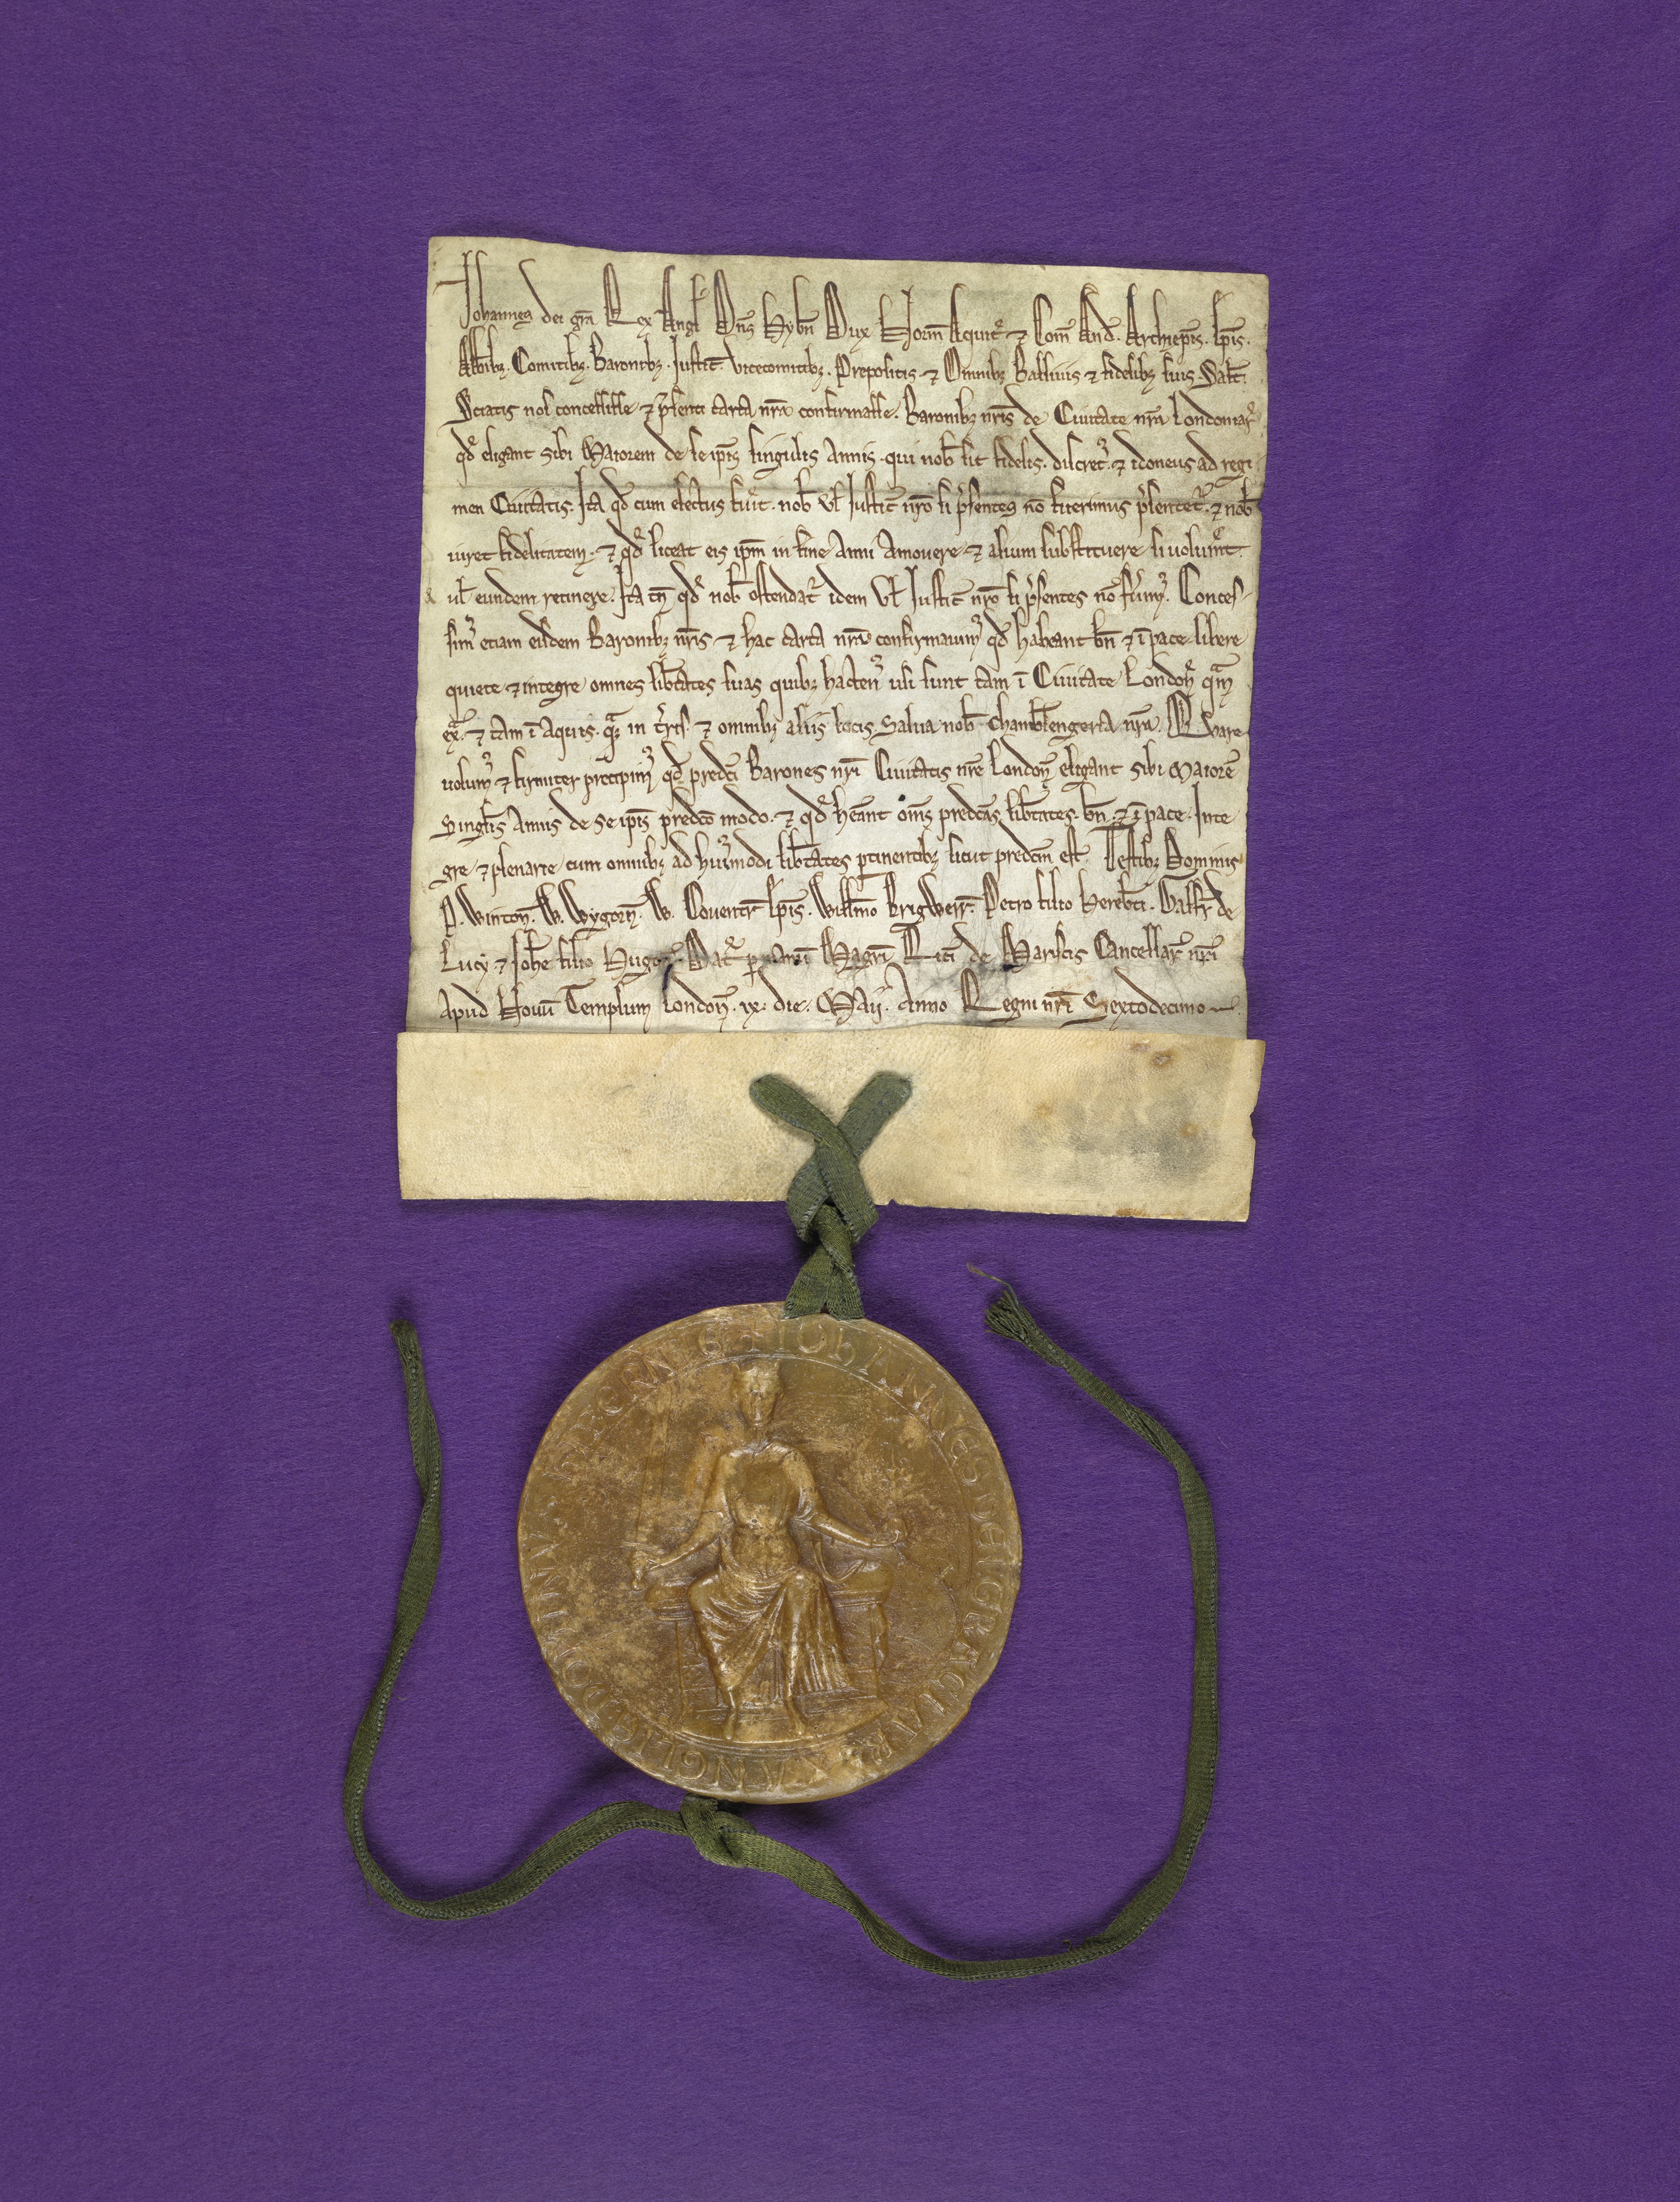 Johannes dei gra Rex Angl Dns Hybn Dux Norm Aquit ⁊ Com And. Archiepis. Epis.
Abbibz. Comitibz. Baronibz. Justic. Vicecomitibz. Prepositis ⁊ Omnibz Ballivis ⁊ fidelibz suis Salt.
Sciatis nos concessisse ⁊ psenti carta nra confirmasse. Baronibz nris de Civitate nra Londoniar
qd eligant sibi Maiorem de se ipis singulis Annis. qui nob sit fidelis. discret. ⁊ idoneus ad regi
men Civitatis. Ita qd cum electus fuit. nob vl Justic nro si psentes no fuerimus psentet. ⁊ nob
iuret fidelitatem. ⁊ qd liceat eis ipm in fine Anni Amovere ⁊ alium substituere si voluint.
ul eundem retinere. Ita tn qd nob ostendat idem vl Justic nro si psentes no fuim. Conces-
sim etiam eisdem Baronibz nris ⁊ hac carta nra confirmavim qd habeant bn ⁊ i pace libere
quiete ⁊ integre omnes libtates suas quibz hacten usi sunt tam i Civitate London qam
ex. ⁊ tam i Aquis. qam in tris. ⁊ omnibz aliis locis. Salva nob Chamblengeria nra. Quare
volum ⁊ firmiter precipim qd predci Barones nri Civitatis nre London eligant sibi Maiore
Singlis Annis de Se ipis predco modo. ⁊ qd heant oms predcas libtates. bn ⁊ i pace. Inte
gre ⁊ plenarie cum omnibz ad huimodi libtates ptinentibz sicut predcm est. Testibz Dominis
P. Winton. W. Wygorn. W. Coventr Epis. Willmo Brigwerr. Petro filio Herebti. Galfr de
Lucy ⁊ Johe filio Hugon. Dat p manu Magri Rici de Mariscis Cancellar nri
Apud Novu Templum London. ix. die. Maij. Anno Regni nri Sextodecimo
IOHANNES DEI GRACIA REX ANGLIE DOMINVS HIBERNIE